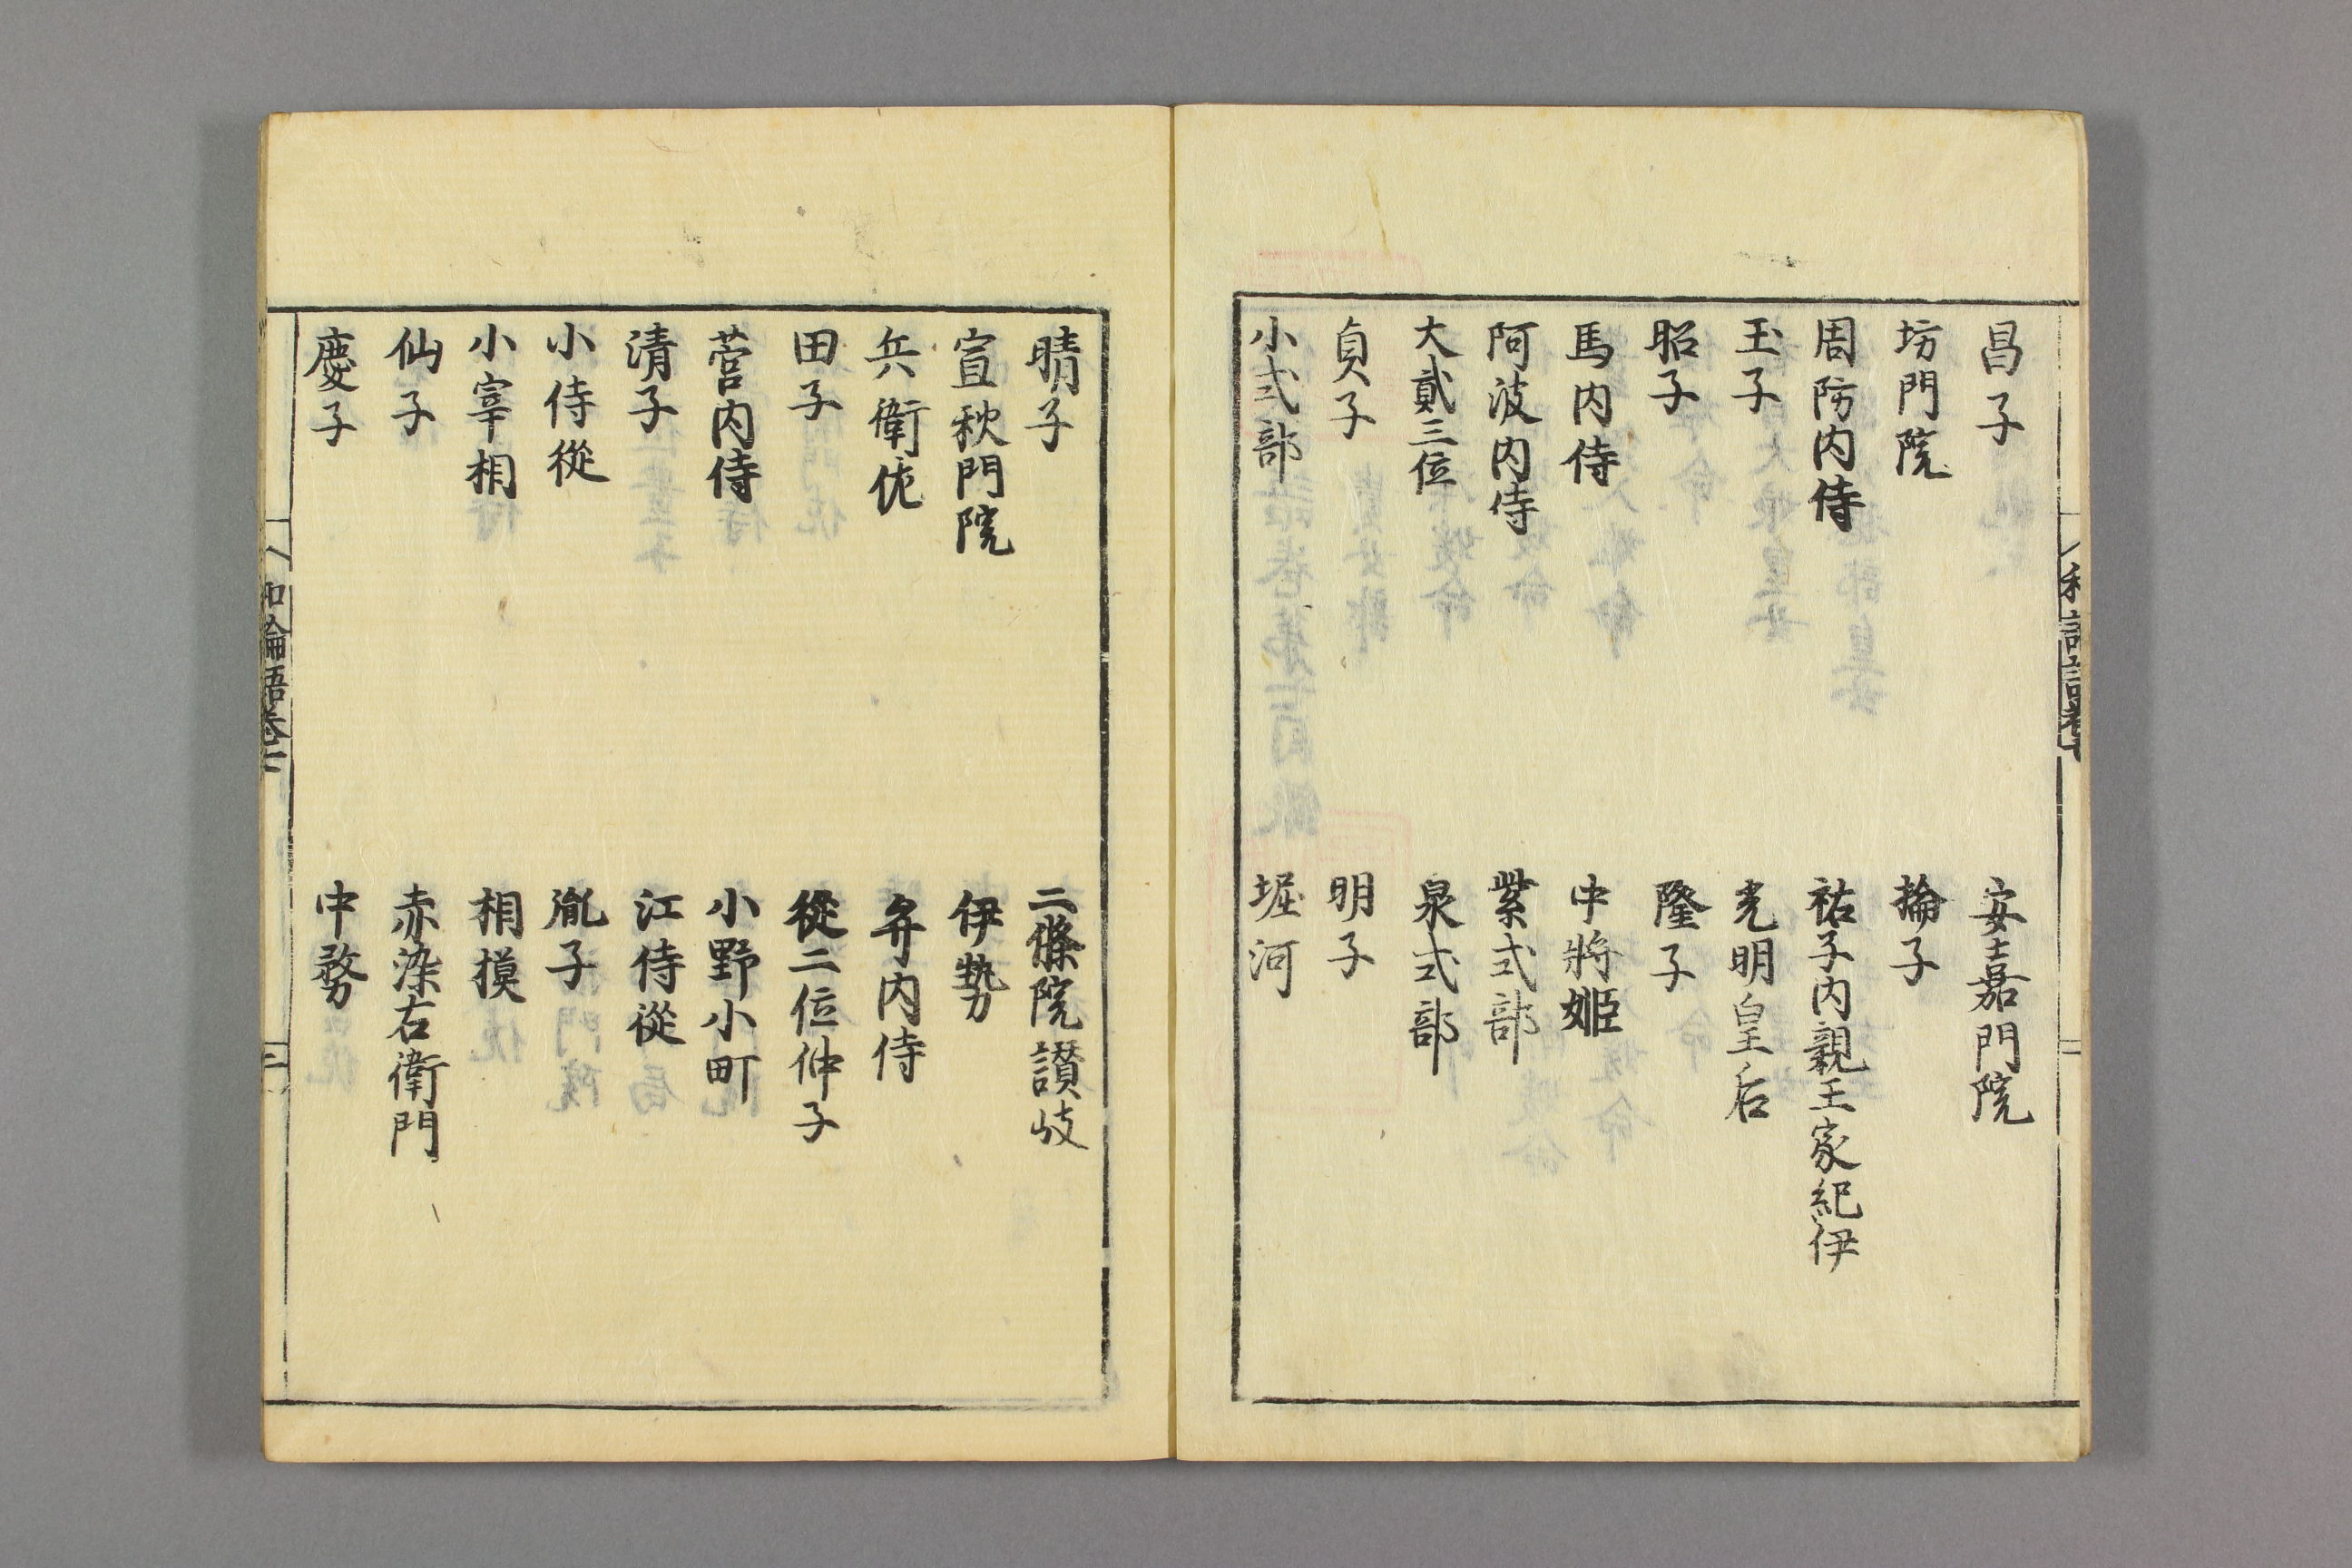 昌子　安嘉門院
坊門院　掄子
周防内侍　祐子内親王家紀伊
玉子　光明皇后
昭子　隆子
馬内侍　中將姫
阿波内侍　紫式部
大貳三位　泉式部
貞子　明子
小式部　堀河
晴子　二條院讃岐
宣秋門院　伊勢
兵衛佐　弁内侍
田子　從二位仲子
菅内侍　小野小町
清子　江侍從
小侍從　胤子
小宰相　相摸
仙子　赤染右衛門
慶子　中務
和論語卷二　二